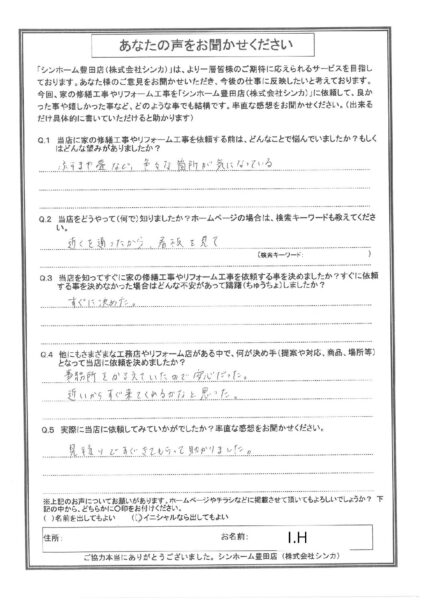 あなたの声をお聞かせください
「シンホーム豊田店(株式会社シンカ)」は、より一層皆様のご期待に応えられるサービスを目指し
ております。あなた様のご意見をお聞かせいただき、今後の仕事に反映したいと考えております。
今回、家の修繕工事やリフォーム工事を「シンホーム豊田店(株式会社シンカ)」に依頼して、良か
った事や嬉しかった事など、どのような事でも結構です。率直な感想をお聞かせください。(出来る
だけ具体的に書いていただけると助かります)
Q.1 当店に家の修繕工事やリフォーム工事を依頼する前は、どんなことで悩んでいましたか?もしく
はどんな望みがありましたか?
ふすまや畳など、色々な箇所が気になっている
Q.2 当店をどうやって(何で)知りましたか?ホームページの場合は、検索キーワードも教えてくださ
い。
近くを通ったから、看板を見て
【検索キーワード: 】
Q.3 当店を知ってすぐに家の修繕工事やリフォーム工事を依頼する事を決めましたか?すぐに依頼
する事を決めなかった場合はどんな不安があって躊躇(ちゅうちょ)しましたか?
すぐに決めた。
Q.4 他にもさまざまな工務店やリフォーム店がある中で、何が決め手(提案や対応、商品、場所等)
となって当店に依頼を決めましたか?
事務所をかまえていたので安心だった。
近いからすぐ来てくれるかなと思った。
Q.5 実際に当店に依頼してみていかがでしたか?率直な感想をお聞かせください。
見積りですぐきてもらって助かりました。
※上記のお声についてお願いがあります。ホームページやチラシなどに掲載させて頂いてもよろしいでしょうか? 下
記の中から、どちらかに〇印をお付けください。
( )名前を出してもよい (〇)イニシャルなら出してもよい
住所: お名前: I.H
ご協力本当にありがとうございました。シンホーム豊田店 (株式会社シンカ)